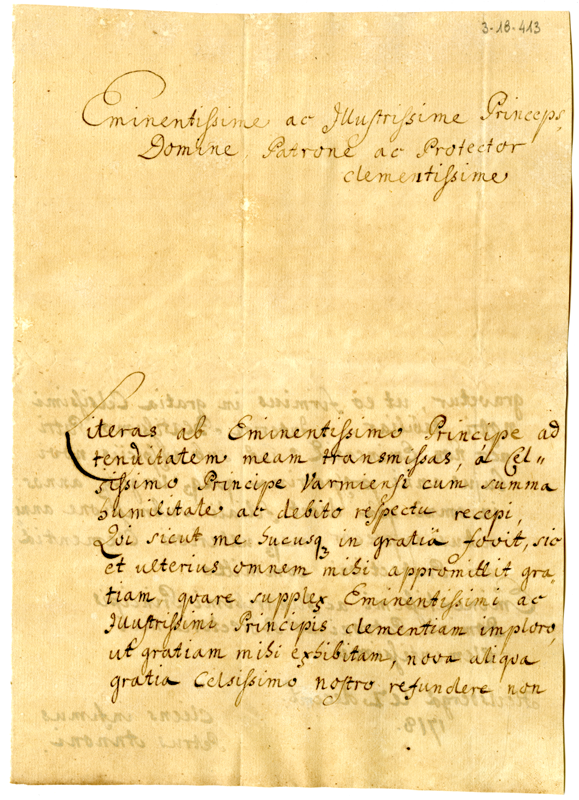 3-18-413
Eminentissime ac Illustrissime Princeps,
Domine Patrone ac Protector
clementissime
Literas ab Eminentissimo Principe ad
tenuitatem meam transmissas, à Cel=
sissimo Principe Varmiensi cum summa
humilitate ac debito respectu recepi,
Qui sicut me hucusq3 in gratiâ fovit, sic
et ulterius omnem mihi appromittit gra,
tiam quare supplex Eminentissimi ac
Illustrissimi Principis clementiam imploro,
ut gratiam mihi exhibitam, nova aliqua
gratia Celsissimo nostro refundere non